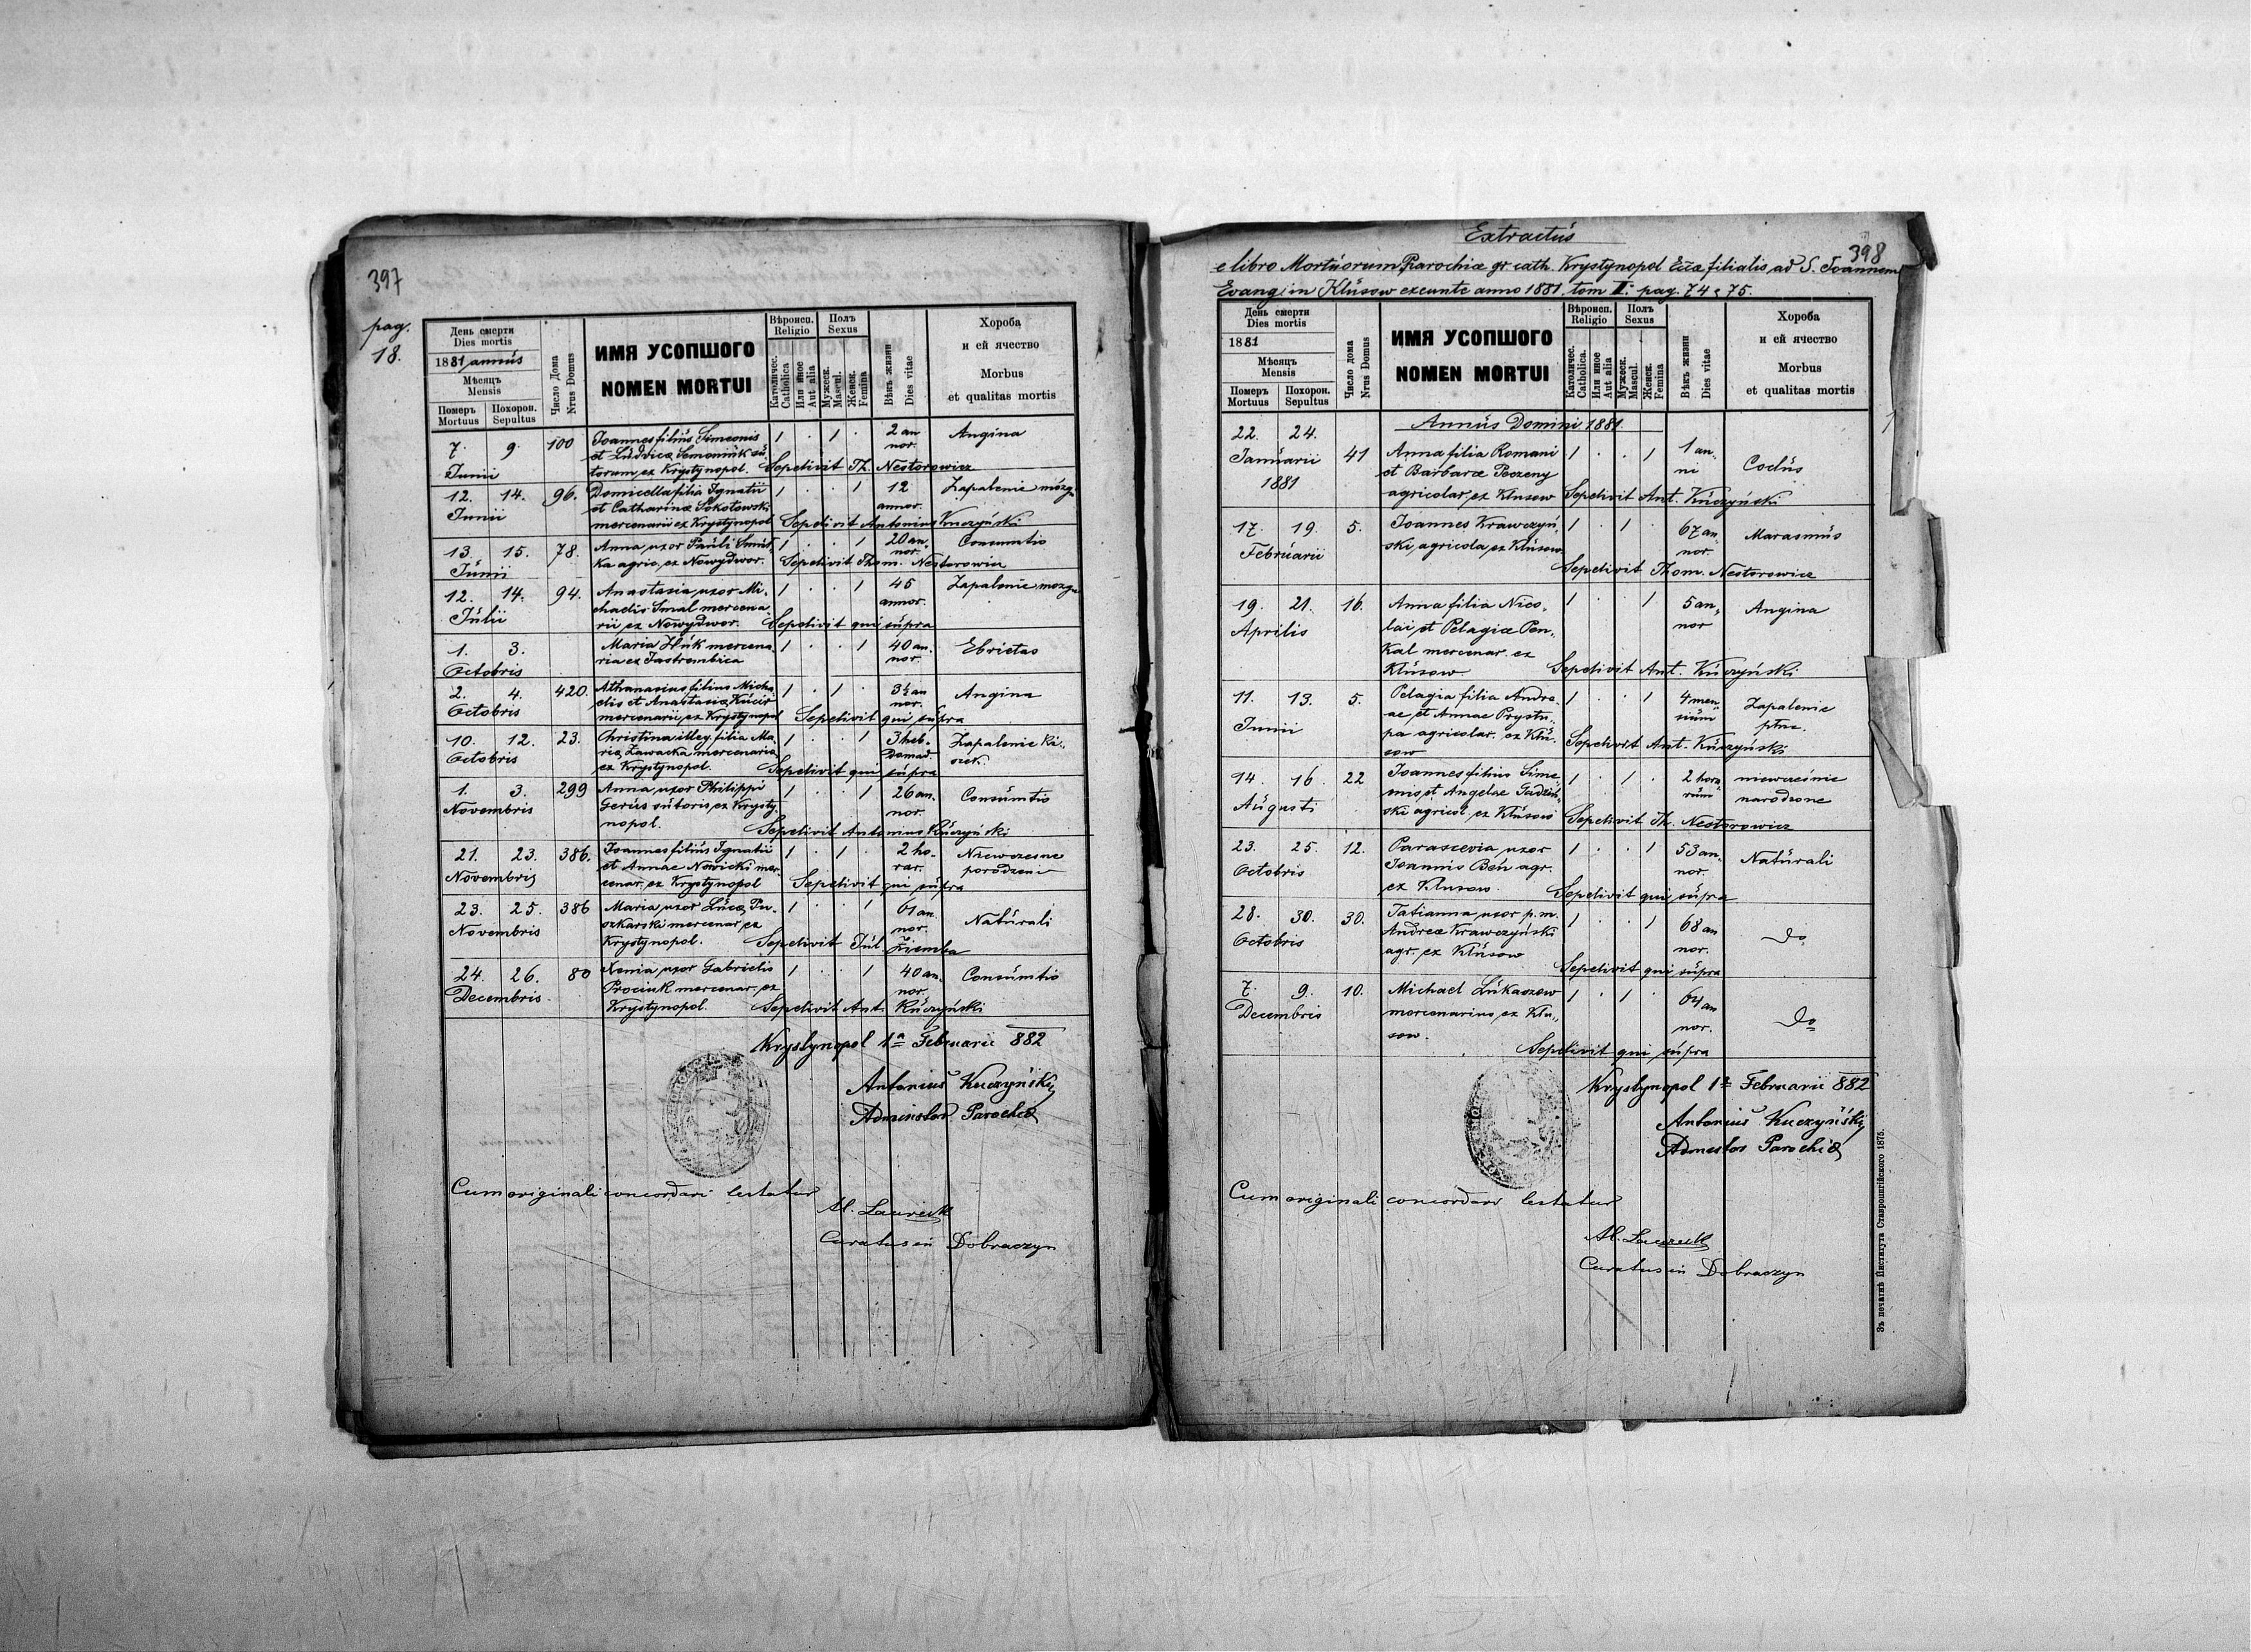 397
pag.
18.
День смерти
Dies mortis
1881 annus
Мѣсяцъ
Mensis
Померъ
Mortuus
Похорон.
Sepultus
Число Дома
Nrus Domus
ИМЯ УСОПШОГО
NOMEN MORTUI
Вѣроисп.
Religio
Католичес.
Catholica
Или иное
Aut alia
Полъ
Sexus
Мужеск.
Mascul.
Женск.
Femina
Вѣкъ жизни
Dies vitae
Хороба
и ей ячество
Morbus
et qualitas mortis
7. 9. 100 Joannes filius Simeonis 1 . 1 . 2 an Angina
et Ludvicæ Semoniuk su- nor.
Junii torum, ex Krystynopol. Sepelivit Th. Nestorowicz
12. 14. 96. Domicella filia Ignatii 1 . . 1 12 Zapalenie mózgu
Junii et Catharinæ Sokołowski annor.
mercenarii ex Krystynopol Sepelivit Antonius Kuczyński
13. 15. 78. Anna, uxor Pauli Smut- 1 . . 1 20 an- Consumtio
Junii ka agric, ex Nowydwor. nor. Sepelivit Thom. Nestorowicz
12. 14. 94. Anastasia, uxor Mi- 1 . . 1 45 Zapalenie mozgu
Julii chaelis Smal mercena- annor.
rii ex Nowydwor. Sepelivit qui supra
1. 3. Maria Huk mercena- 1 . . 1 40 an- Ebrietas
Octobris ria ex Jastrembica nor.
2. 4. 420. Athanasius filius Micha- 1 . 1 . 3½ an Angina
Octobris elis et Anastasiæ Kucir nor.
mercenarii, ex Krystynopol Sepelivit qui supra
10. 12. 23. Christina illeg. filia Ma- 1 . . 1 3 heb- Zapalenie Ki-
Octobris riæ Zawacka mercenaria domad. szek.
ex Krystynopol. Sepelivit qui supra
1. 3. 299 Anna, uxor Philippi 1 . . 1 26 an- Consumtio
Novembris Gerus sutoris, ex Krysty- nor.
nopol. Sepelivit Antonius Kuczyński
21. 23. 386. Joannes filius Ignatii 1 . 1 . 2 ho- Niewczesne
Novembris et Annae Nowicki mer- rar. porodzenie
cenar. ex Krystynopol Sepelivit qui supra
23. 25. 386 Maria, uxor Lucæ Pu- 1 . . 1 61 an- Naturali
Novembris szkarski mercenar, ex nor.
Krystynopol. Sepelivit Jul. Ziemba
24. 26. 80 Xenia, uxor Gabrielis 1 . . 1 40 an- Consumtio
Decembris Prociuk mercenar. ex nor.
Krystynopol. Sepelivit Ant. Kuczyński
Krystynopol 1ª Februarii 882
Antonius Kuczyński
Administor Parochiæ
Cum originali concordari testatur
Curatus in Dobraczyn
398
Extractus
e libro Mortuorum Parochiæ gr. cath. Krystynopol Eccæ filialis ad S. Joannem
Evang. in Klusow exeunte anno 1881. tom II. pag. 74 & 75.
День смерти
Dies mortis
1881
Мѣсяцъ
Mensis
Померъ
Mortuus
Похорон.
Sepultus
Число дома
Nrus Domus
ИМЯ УСОПШОГО
NOMEN MORTUI
Вѣроисп.
Religio
Католичес.
Catholica.
Или иное
Aut alia
Полъ
Sexus
Мужеск.
Mascul.
Женск.
Femina
Вѣкъ жизни
Dies vitae
Хороба
и ей ячество
Morbus
et qualitas mortis
Annus Domini 1881
22. 24. 41 Anna filia Romani 1 . . 1 1 an-
Januarii et Barbaræ Poczeny ni Coclus
1881 agricolar, ex Klusow Sepelivit Ant. Kuczyński
17. 19. 5. Joannes Krawczyń- 1 . 1 . 67 an- Marasmus
Februarii ski, agricola, ex Klusow nor.
Sepelivit Thom. Nestorowicz
19. 21. 16. Anna filia Nico- 1 . . 1 5 an- Angina
Aprilis lai et Pelagiæ Pen- nor
kal mercenar. ex
Klusow Sepelivit Ant. Kuczyński
11. 13. 5. Pelagia filia Andre- 1 . . 1 4 men- Zapalenie
Junii ae et Annae Prystu- sium płuc.
pa agricolar. ex Klu-
sow Sepelivit Ant. Kuczyński
14. 16. 22 Joannes filius Sime- 1 . 1 . 2 hora- niewcześnie
Augusti onis et Angelae Gudziń- rum narodzone
ski agricol, ex Klusow Sepelivit Th. Nestorowicz
23. 25. 12. Parascevia uxor 1 . . 1 53 an- Naturali
Octobris Joannis Beń agr. nor.
ex Klusow. Sepelivit qui supra
28. 30. 30. Tatianna uxor p.m. 1 . . 1 68 an do
Octobris Andreæ Krawczyński nor.
agr. ex Klusow Sepelivit qui supra
7. 9. 10. Michael Lukaszew 1 . 1 . 64 an do
Decembris mercenarius, ex Klu- nor.
sow. Sepelivit qui supra
Krystynopol 1ª Februarii 882
Antonius Kuczyński
Admestor Parochiæ
Cum originali concordari testatur
Curatus in Dobraczyn
Зъ печатнѣ Института Ставропигійского 1875.